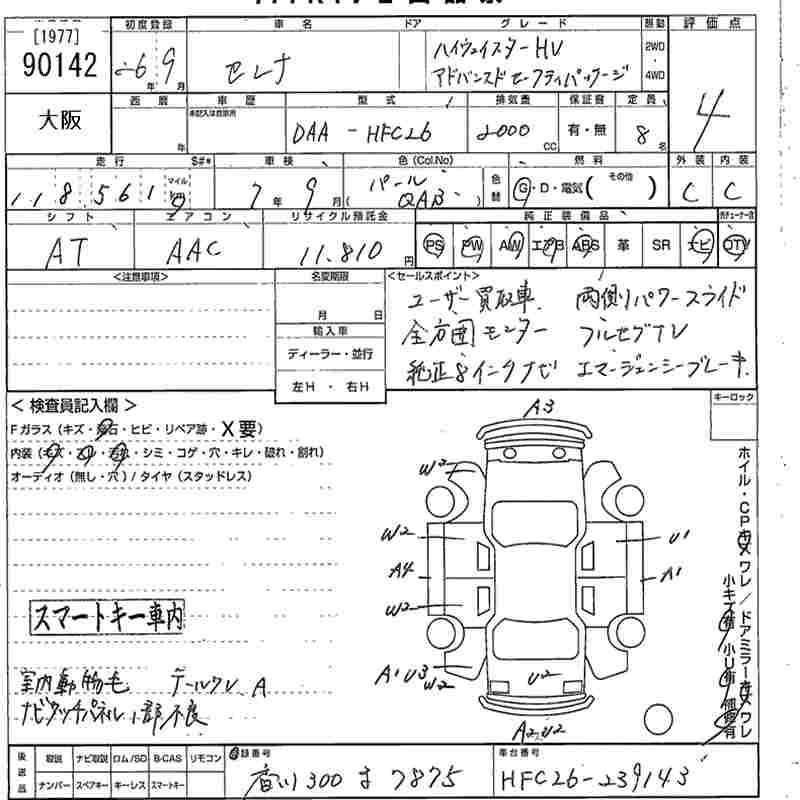 [1977]
90142
初度登録
26年 9月
車名
セレナ
ドア
グレード
ハイウェイスターHV
アドバンスドセーフティパッケージ
駆動
2WD
4WD
評価点
4
大阪
西暦
年
車歴
未記入は自家用
型式
DAA - HFC26
排気量
2000 CC
保証書
有・無
定員
8名
走行
118,561
マイル
km
S#*
車検
7年 9月
色 (Col.No)
(パール QAB)
色替
燃料
G・D・電気( その他 )
外装
C
内装
C
シフト
AT
エアコン
AAC
リサイクル預託金
11,810円
純正装備品
PS PW AW エアB ABS 革 SR ナビ TV
<注意事項>
名変期限
月 日
輸入車
ディーラー・並行
左H ・ 右H
<セールスポイント>
ユーザー買取車 両側パワースライド
全方囲モニター フルセグTV
純正8インチナビ エマージェンシーブレーキ
<検査員記入欄>
Fガラス (キズ・飛石・ヒビ・リペア跡・X要)
内装 (キズ・スレ・汚れ・シミ・コゲ・穴・キレ・破れ・割れ)
オーディオ (無し・穴) / タイヤ (スタッドレス)
スマートキー車内
室内動物毛 テールワレ A
ナビタッチパネル1部不良
キーロック
ホイル・CPキズワレ / ドアミラーキズワレ
小キズ有 小U有 補修有
A3
W2
W2
A4
W2
A1 U3
W2
U1
A1
U2
A2 U2
後送品
取説 ナビ取説 ロム/SD B-CAS リモコン
ナンバー スペアキー キーレス スマートキー
登録番号
香川 300 す 7875
車台番号
HFC26-239143